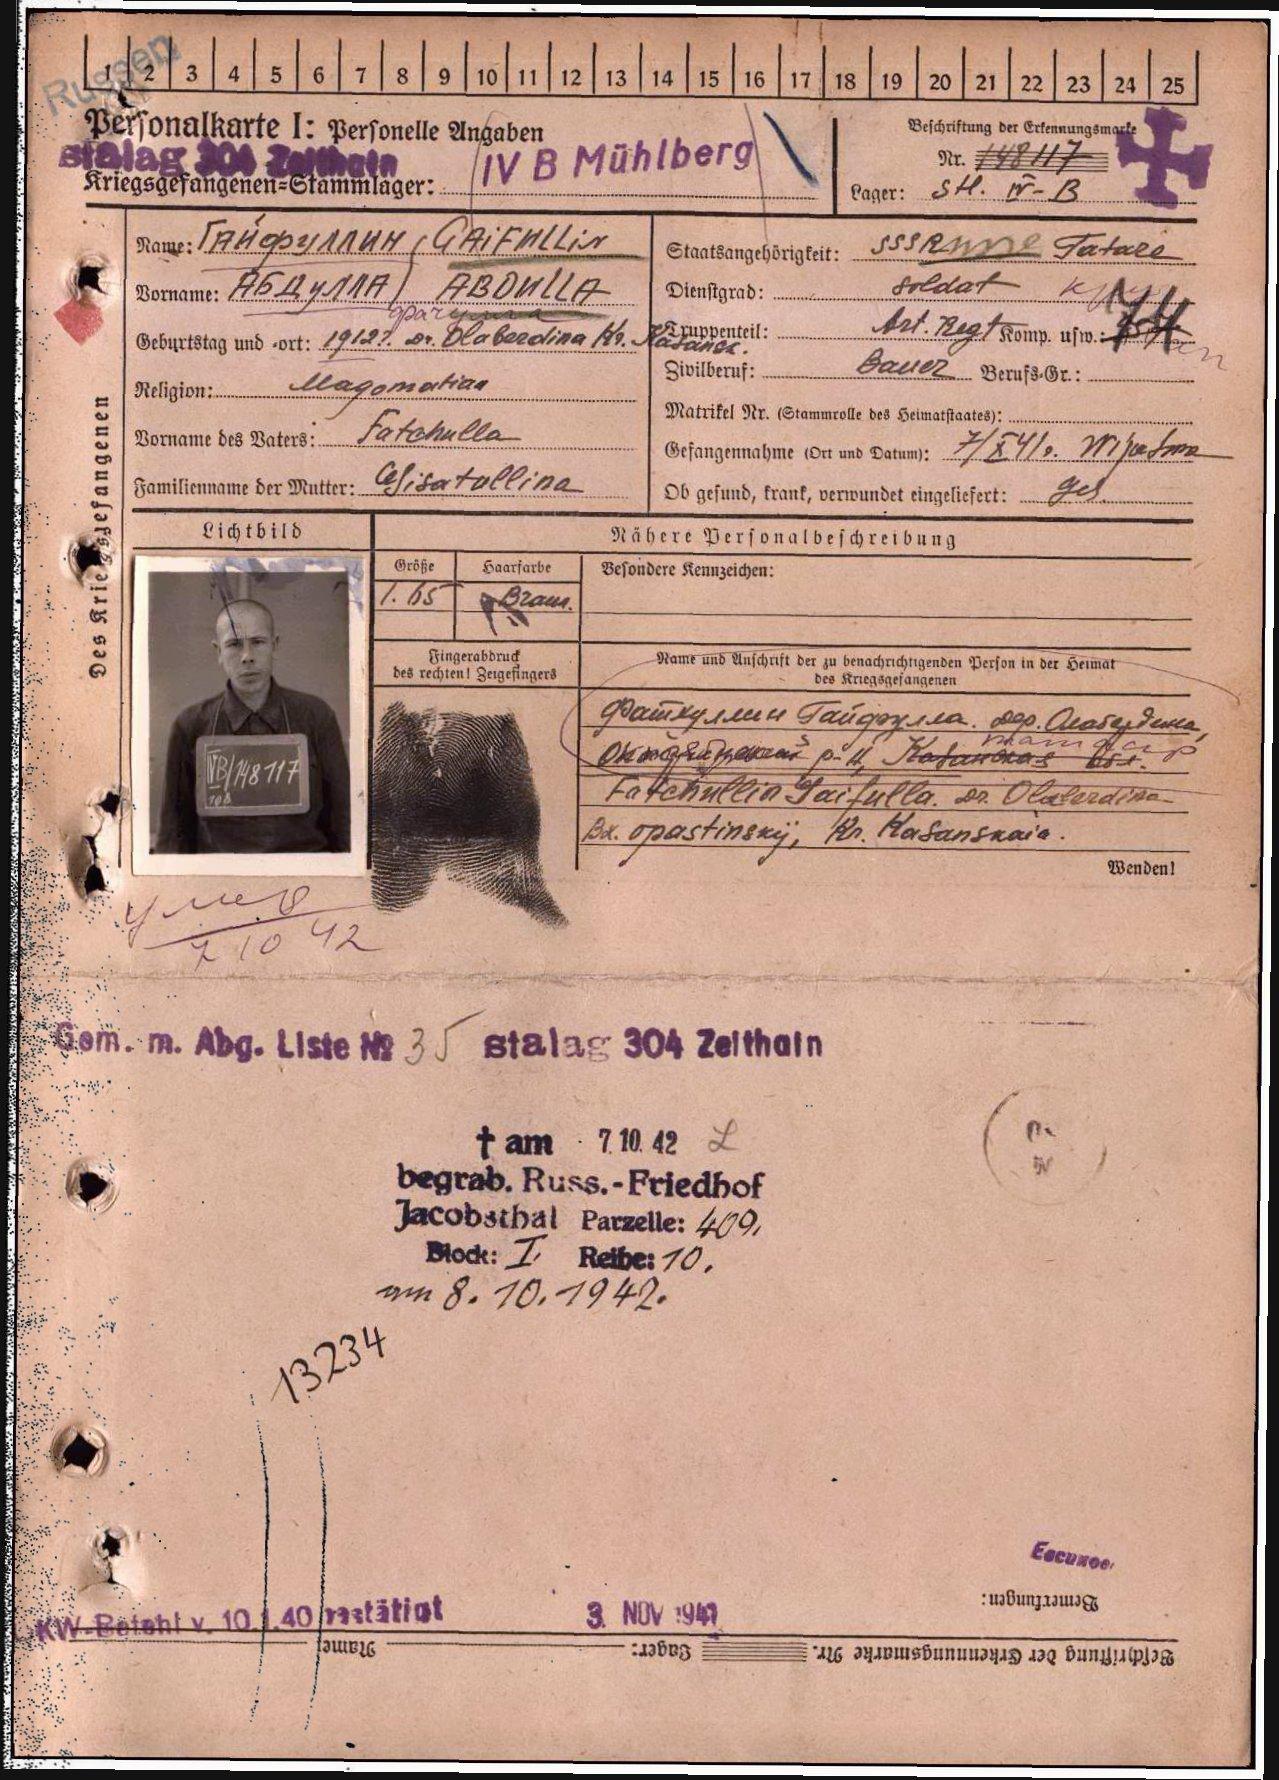 Russen
1 2 3 4 5 6 7 8 9 10 11 12 13 14 15 16 17 18 19 20 21 22 23 24 25
Personalkarte I: Personelle Angaben
stalag 304 Zeithain
Kriegsgefangenen-Stammlager: IV B Mühlberg
Beschriftung der Erkennungsmarke
Nr. 148117
Lager: Stl. IV-B
Des Kriegsgefangenen
Name: ГАЙФУЛЛИН, GAIFULLIN
Vorname: АБДУЛЛА ABDULLA
Geburtstag und -ort: 1912. Dr. Olaberdina Kr. Kasansk.
Religion: Magometian
Vorname des Vaters: Fatchulla
Familienname der Mutter: Gisatullina
Staatsangehörigkeit: SSSR Tatare
Dienstgrad: Soldat
Truppenteil: Art. Regt Komp. usw.:
Zivilberuf: Bauer Berufs-Gr.:
Matrikel Nr. (Stammrolle des Heimatstaates):
Gefangennahme (Ort und Datum): 7/X 41. Wjasma
Ob gesund, krank, verwundet eingeliefert: ges.
Lichtbild
Nähere Personalbeschreibung
Größe Haarfarbe Besondere Kennzeichen:
1.65 Braun.
IVB/148117
108
Fingerabdruck
des rechten! Zeigefingers
Name und Anschrift der zu benachrichtigenden Person in der Heimat
des Kriegsgefangenen
Фаткуллин Гайфулла. дер. Олабердина,
р-н, Казанская обл.
Fatchullin Gaifulla. Dr. Olaberdina
Kr. Kasanskaia.
Wenden!
умер
7 10 42
Gem. m. Abg. Liste № 35 stalag 304 Zeithain
† am 7.10.42
begrab. Russ.-Friedhof
Jacobsthal Parzelle: 409,
Block: I, Reihe: 10.
am 8.10.1942.
13234
Bemerkungen:
KW-Befehl v. 10.1.40 3. NOV 1941
Beschriftung der Erkennungsmarke Nr. Lager: Name: